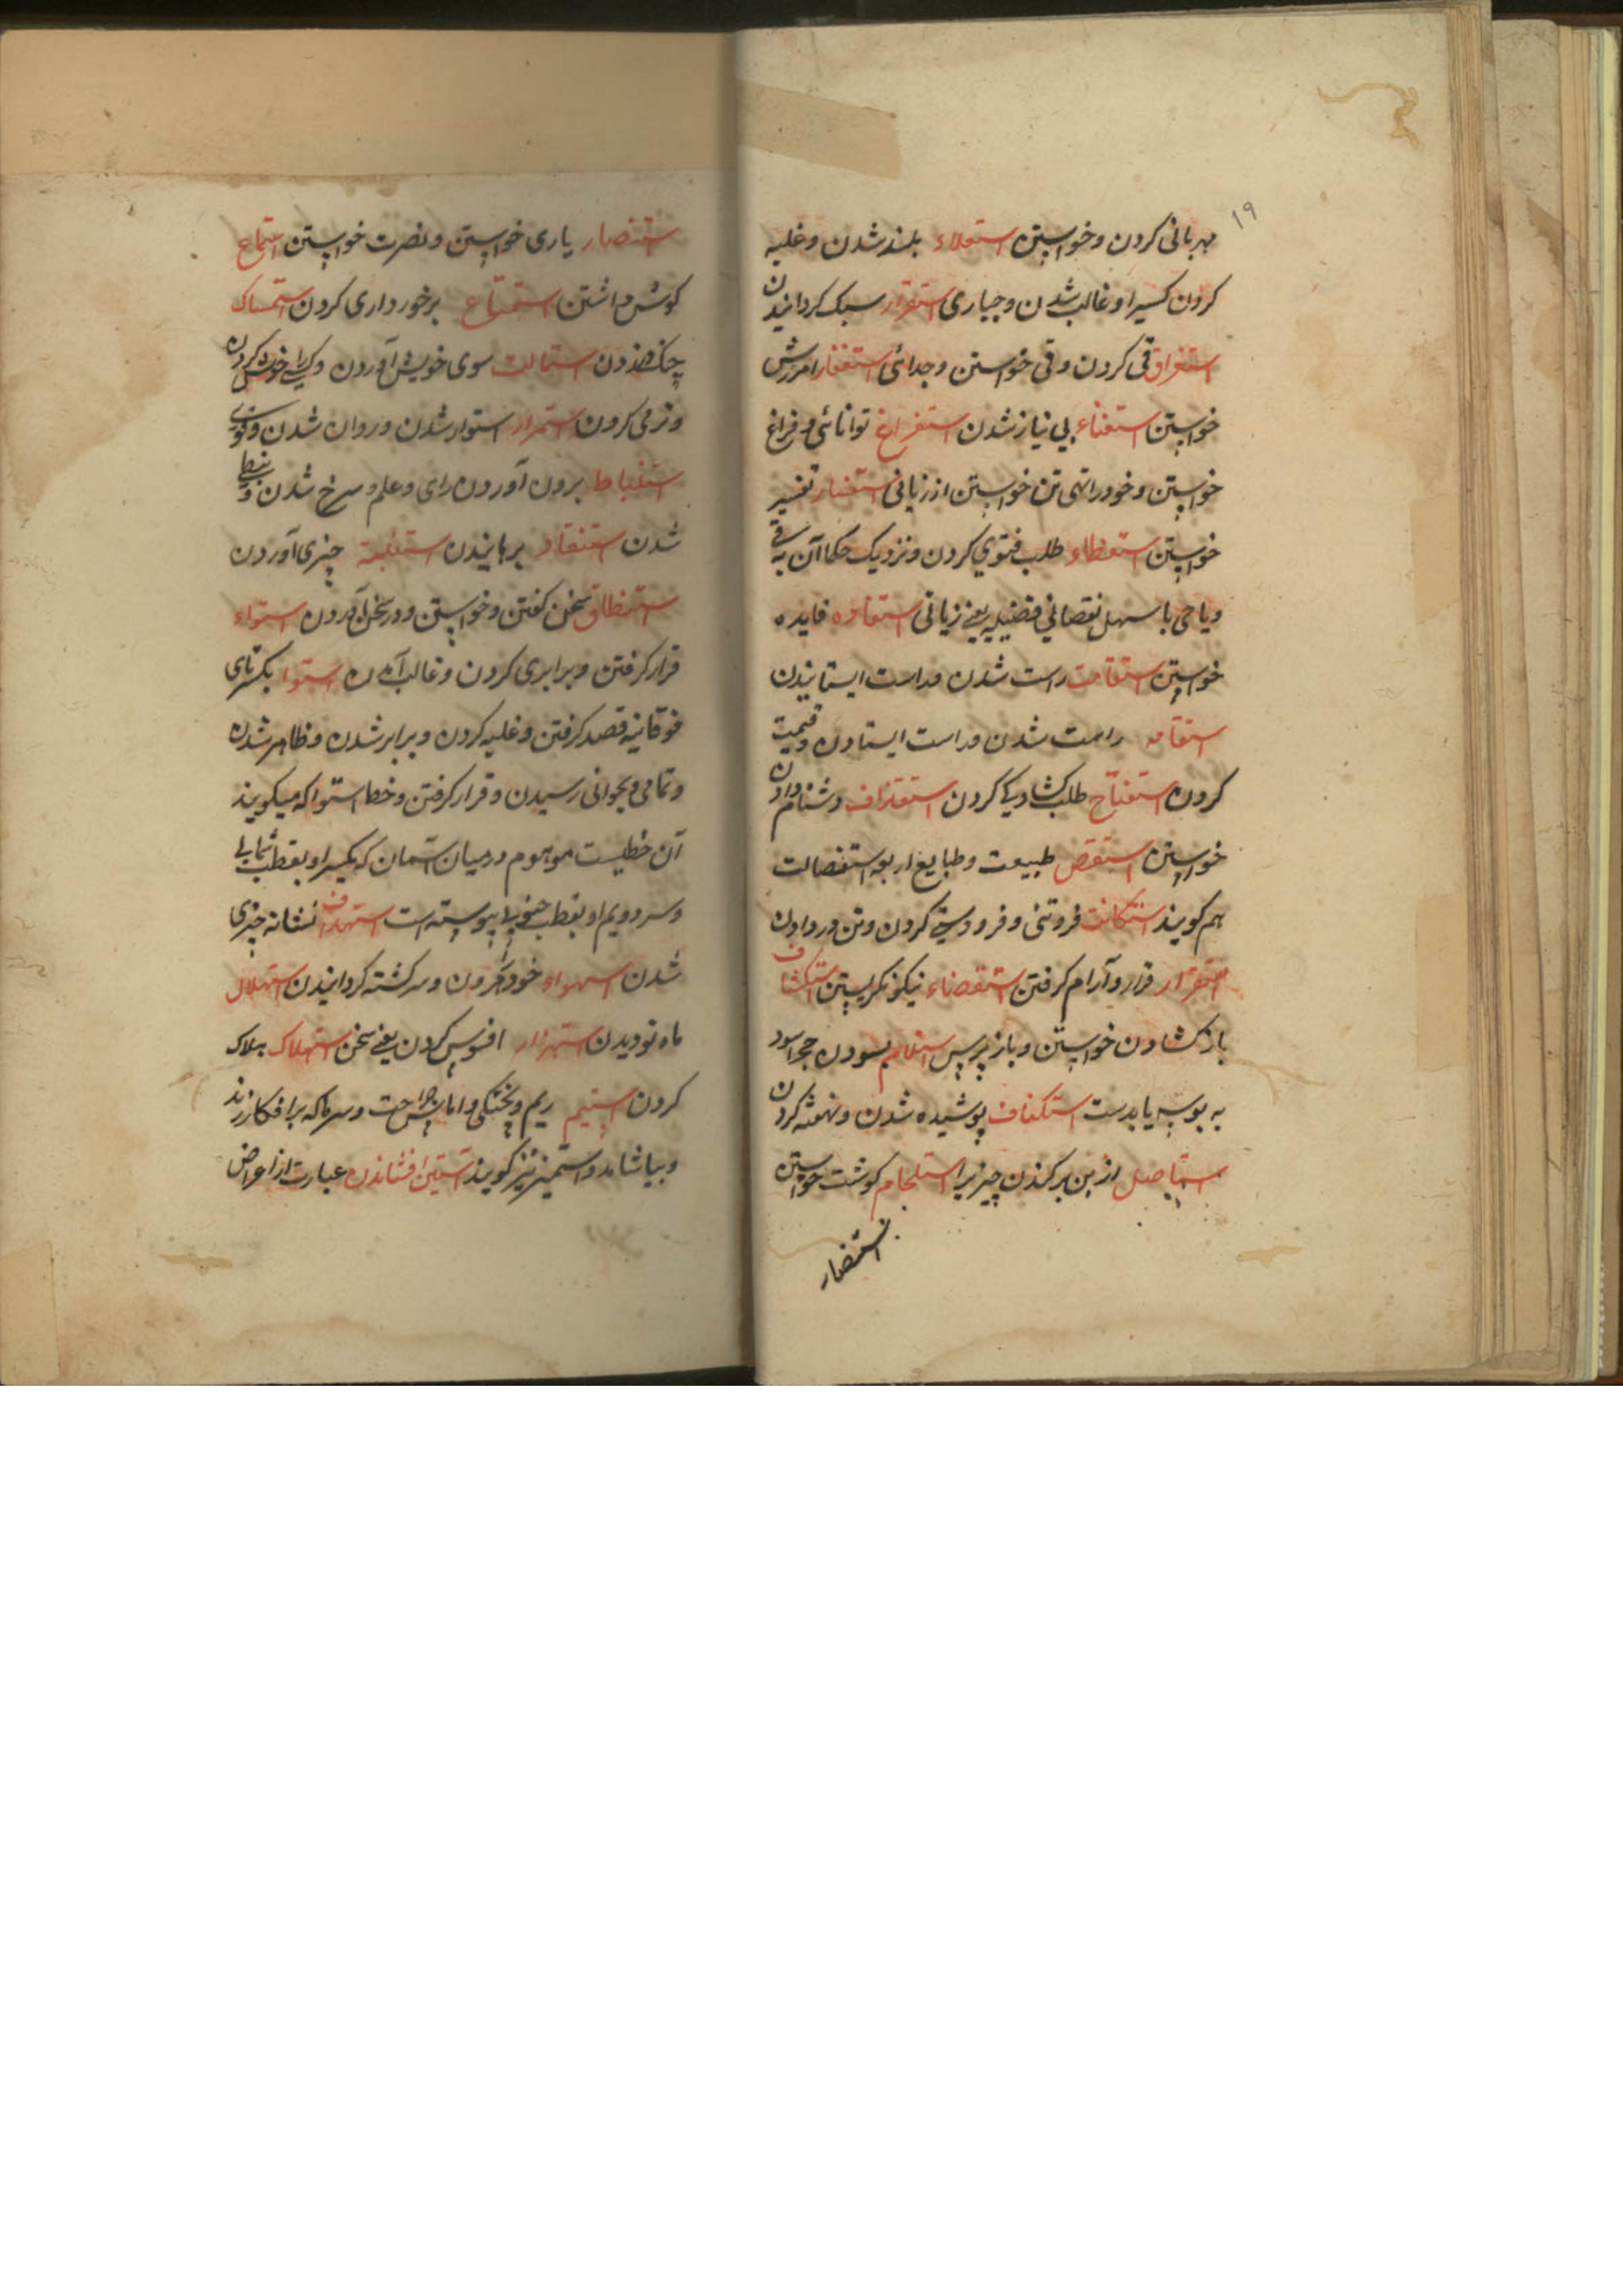 ۱۹
مهربانی کردن و خواستن استعلاء بلند شدن و غلبه
کردن کسیرا و غالب شدن و جباری استقرار سبک کردانیدن
استفراق قی کردن و قی خواستن و جدائی استغفار امرزش
خواستن استغناء بی نیاز شدن استفراغ توانائی و فراغ
خواستن و خود را تهی تن خواستن از زیانی استفسار تفسیر
خواستن استعطاء طلب فتوی کردن و نزدیک حکما آن
ویا حی با سهل نقصانی فضیلیه یعنی زیانی استفاده فایده
خواستن استقامت راست شدن و راست ایستانیدن
استقامه راست شدن و راست ایستادن و قیمت
کردن استفتاح طلب کشادیکی کردن استقذاف دشنام دادن
خواستن استقص طبیعت و طبایع اربعه استقصالت
هم کویند استکانت فروتنی و فرودستی کردن و تن در دادن
استقرار قرار و آرام کرفتن استقصاء نیکو نکریستن استکشاف
باز کشادن خواستن و باز پرس استلام بسودن حجر اسود
به بوسه یا بدست استکفاف پوشیده شدن و نهفته کردن
استیاصل از بن برکندن چیزیرا استلحام کوشت خواستن
استنصار
استنصار یاری خواستن و نصرت خواستن استماع
کوش داشتن استمتاع برخورداری کردن استمساک
چنک در زدن استمالت سوی خویش آوردن و کسی را خوش کردن
و نرمی کردن استمرار استوار شدن و روان شدن و قوی
استنباط برون آوردن رای و علم و سرخ شدن و نبطی
شدن استنقاد برهانیدن استنلبة چیزی آوردن
استنطاق سخن کفتن و خواستن و در سخن آوردن استواء
قرار کرفتن و برابری کردن و غالب آمدن استوا بکسر تای
فوقانیه قصد کرفتن و غلبه کردن و برابر شدن و ظاهر شدن
و تمامی و بجوانی رسیدن و قرار کرفتن و خط استوا که میکویند
آن خطیست موهوم در میان آسمان که یکسر او بقطب شمالی
و سر دویم او بقطب جنوبی پیوسته است استهداف نشانه چیزی
شدن استهواء خود کردن و سرکشته کردانیدن استهلال
ماه نو دیدن استهزاء افسوس کردن یعنی سخن استهلاک هلاک
کردن استیم ریم و پختکی و اماس جراحت و سرما که بر افکار زند
و بیاشامد و استمیز نیز کویند آستین افشاندن عبارت از اعراض